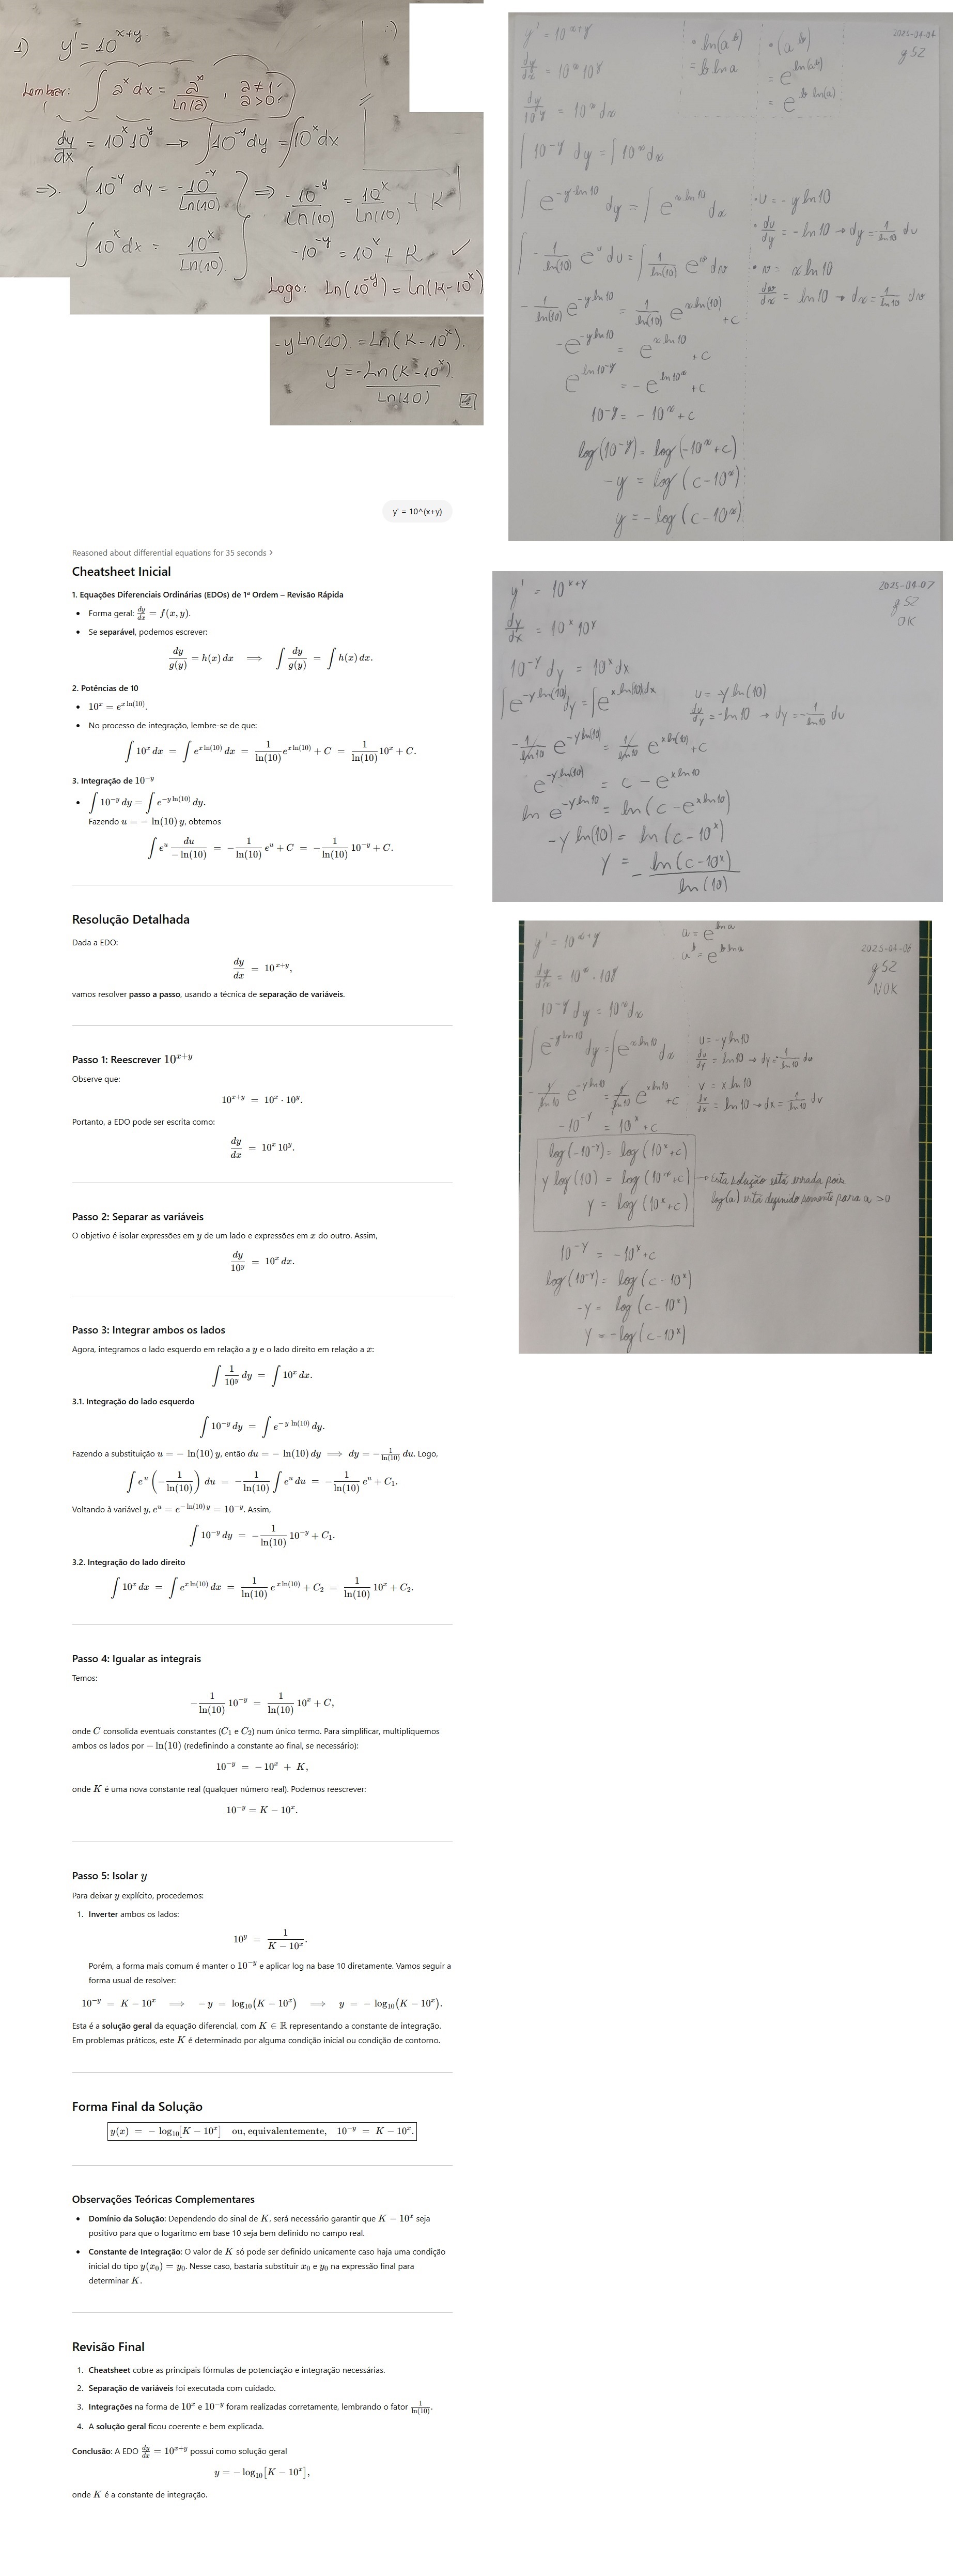 1) y' = 10^{x+y}
Lembrar: ∫ a^x dx = a^x / Ln(a) , a ≠ 1, a > 0
dy/dx = 10^x 10^y → ∫10^{-y} dy = ∫10^x dx
⇒. ∫ 10^{-y} dy = -10^{-y} / Ln(10) ⇒ -10^{-y} / Ln(10) = 10^x / Ln(10) + K
∫ 10^x dx = 10^x / Ln(10) -10^{-y} = 10^x + K ✓
Logo: Ln(10^{-y}) = Ln(K-10^x)
-y Ln(10) = Ln(K-10^x).
y = -Ln(K-10^x) / Ln(10)
y' = 10^{x+y}
dy/dx = 10^x 10^y
dy/10^y = 10^x dx
∫ 10^{-y} dy = ∫ 10^x dx
∫ e^{-y ln 10} dy = ∫ e^{x ln 10} dx
∫ - 1/ln(10) e^u du = ∫ 1/ln(10) e^v dv
- 1/ln(10) e^{-y ln 10} = 1/ln(10) e^{x ln(10)} + c
-e^{-y ln 10} = e^{x ln 10} + c
e^{ln 10^{-y}} = -e^{ln 10^x} + c
10^{-y} = -10^x + c
log(10^{-y}) = log(-10^x + c)
-y = log(c-10^x)
y = -log(c-10^x)
• ln(a^b)
= b ln a
• (a^b)
= e^{ln(a^b)}
= e^{b ln(a)}
2025-04-04
g52
• u = -y ln 10
• du/dy = -ln 10 → dy = -1/ln 10 du
• v = x ln 10
dv/dx = ln 10 → dx = 1/ln 10 dv
y' = 10^(x+y)
Reasoned about differential equations for 35 seconds >
Cheatsheet Inicial
1. Equações Diferenciais Ordinárias (EDOs) de 1ª Ordem – Revisão Rápida
• Forma geral: dy/dx = f(x, y).
• Se separável, podemos escrever:
dy/g(y) = h(x) dx ⟹ ∫ dy/g(y) = ∫ h(x) dx.
2. Potências de 10
• 10^x = e^{x ln(10)}.
• No processo de integração, lembre-se de que:
∫ 10^x dx = ∫ e^{x ln(10)} dx = 1/ln(10) e^{x ln(10)} + C = 1/ln(10) 10^x + C.
3. Integração de 10^{-y}
• ∫ 10^{-y} dy = ∫ e^{-y ln(10)} dy.
Fazendo u = − ln(10) y, obtemos
∫ e^u du/−ln(10) = −1/ln(10) e^u + C = −1/ln(10) 10^{-y} + C.
Resolução Detalhada
Dada a EDO:
dy/dx = 10^{x+y},
vamos resolver passo a passo, usando a técnica de separação de variáveis.
Passo 1: Reescrever 10^{x+y}
Observe que:
10^{x+y} = 10^x · 10^y.
Portanto, a EDO pode ser escrita como:
dy/dx = 10^x 10^y.
Passo 2: Separar as variáveis
O objetivo é isolar expressões em y de um lado e expressões em x do outro. Assim,
dy/10^y = 10^x dx.
Passo 3: Integrar ambos os lados
Agora, integramos o lado esquerdo em relação a y e o lado direito em relação a x:
∫ 1/10^y dy = ∫ 10^x dx.
3.1. Integração do lado esquerdo
∫ 10^{-y} dy = ∫ e^{-y ln(10)} dy.
Fazendo a substituição u = − ln(10) y, então du = − ln(10) dy ⟹ dy = −1/ln(10) du. Logo,
∫ e^u (−1/ln(10)) du = −1/ln(10) ∫ e^u du = −1/ln(10) e^u + C₁.
Voltando à variável y, e^u = e^{−ln(10) y} = 10^{-y}. Assim,
∫ 10^{-y} dy = −1/ln(10) 10^{-y} + C₁.
3.2. Integração do lado direito
∫ 10^x dx = ∫ e^{x ln(10)} dx = 1/ln(10) e^{x ln(10)} + C₂ = 1/ln(10) 10^x + C₂.
Passo 4: Igualar as integrais
Temos:
−1/ln(10) 10^{-y} = 1/ln(10) 10^x + C,
onde C consolida eventuais constantes (C₁ e C₂) num único termo. Para simplificar, multipliquemos
ambos os lados por − ln(10) (redefinindo a constante ao final, se necessário):
10^{-y} = −10^x + K,
onde K é uma nova constante real (qualquer número real). Podemos reescrever:
10^{-y} = K − 10^x.
Passo 5: Isolar y
Para deixar y explícito, procedemos:
1. Inverter ambos os lados:
10^y = 1/(K − 10^x).
Porém, a forma mais comum é manter o 10^{-y} e aplicar log na base 10 diretamente. Vamos seguir a
forma usual de resolver:
10^{-y} = K − 10^x ⟹ −y = log₁₀(K − 10^x) ⟹ y = − log₁₀(K − 10^x).
Esta é a solução geral da equação diferencial, com K ∈ ℝ representando a constante de integração.
Em problemas práticos, este K é determinado por alguma condição inicial ou condição de contorno.
Forma Final da Solução
y(x) = − log₁₀[K − 10^x] ou, equivalentemente, 10^{-y} = K − 10^x.
Observações Teóricas Complementares
• Domínio da Solução: Dependendo do sinal de K, será necessário garantir que K − 10^x seja
positivo para que o logaritmo em base 10 seja bem definido no campo real.
• Constante de Integração: O valor de K só pode ser definido unicamente caso haja uma condição
inicial do tipo y(x₀) = y₀. Nesse caso, bastaria substituir x₀ e y₀ na expressão final para
determinar K.
Revisão Final
1. Cheatsheet cobre as principais fórmulas de potenciação e integração necessárias.
2. Separação de variáveis foi executada com cuidado.
3. Integrações na forma de 10^x e 10^{-y} foram realizadas corretamente, lembrando o fator 1/ln(10).
4. A solução geral ficou coerente e bem explicada.
Conclusão: A EDO dy/dx = 10^{x+y} possui como solução geral
y = − log₁₀[K − 10^x],
onde K é a constante de integração.
y' = 10^{x+y}
dy/dx = 10^x 10^y
10^{-y} dy = 10^x dx
∫ e^{-y ln(10)} dy = ∫ e^{x ln(10)} dx
-1/ln 10 e^{-y ln(10)} = 1/ln 10 e^{x ln(10)} + c
e^{-y ln(10)} = c - e^{x ln 10}
ln e^{-y ln 10} = ln(c - e^{x ln 10})
-y ln(10) = ln(c-10^x)
y = - ln(c-10^x) / ln(10)
2025-04-07
g52
OK
u = -y ln(10)
du/dy = -ln 10 → dy = -1/ln 10 du
y' = 10^{x+y}
dy/dx = 10^x · 10^y
10^{-y} dy = 10^x dx
∫ e^{-y ln 10} dy = ∫ e^{x ln 10} dx
-1/ln 10 e^{-y ln 10} = 1/ln 10 e^{x ln 10} + c
-10^{-y} = 10^x + c
log(-10^{-y}) = log(10^x + c)
y log(10) = log(10^x + c)
y = log(10^x + c)
→ Esta solução está errada pois
log(a) está definido somente para a > 0
10^{-y} = -10^x + c
log(10^{-y}) = log(c-10^x)
-y = log(c-10^x)
y = -log(c-10^x)
a = e^{ln a}
a^b = e^{b ln a}
2025-04-06
g52
NOK
u = -y ln 10
du/dy = ln 10 → dy = -1/ln 10 du
v = x ln 10
dv/dx = ln 10 → dx = 1/ln 10 dv